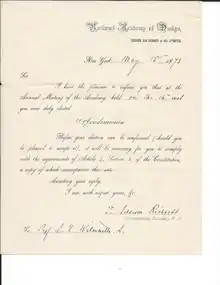 National Academy of Design,
New York, May 1873
Sir
I have the pleasure to inform you that at the
Annual Meeting of the Academy held on the inst
you were duly elected
Academician
Before your election can be confirmed (should you
be pleased to accept it), it will be necessary for you to comply
with the requirements of Article Section of the Constitution,
a copy of which accompanies this note.
Awaiting your reply,
I am, with respect yours, &c.
T. Addison Richards
Corresponding Secretary N.A.
To Prof. L. Wilmarth A.